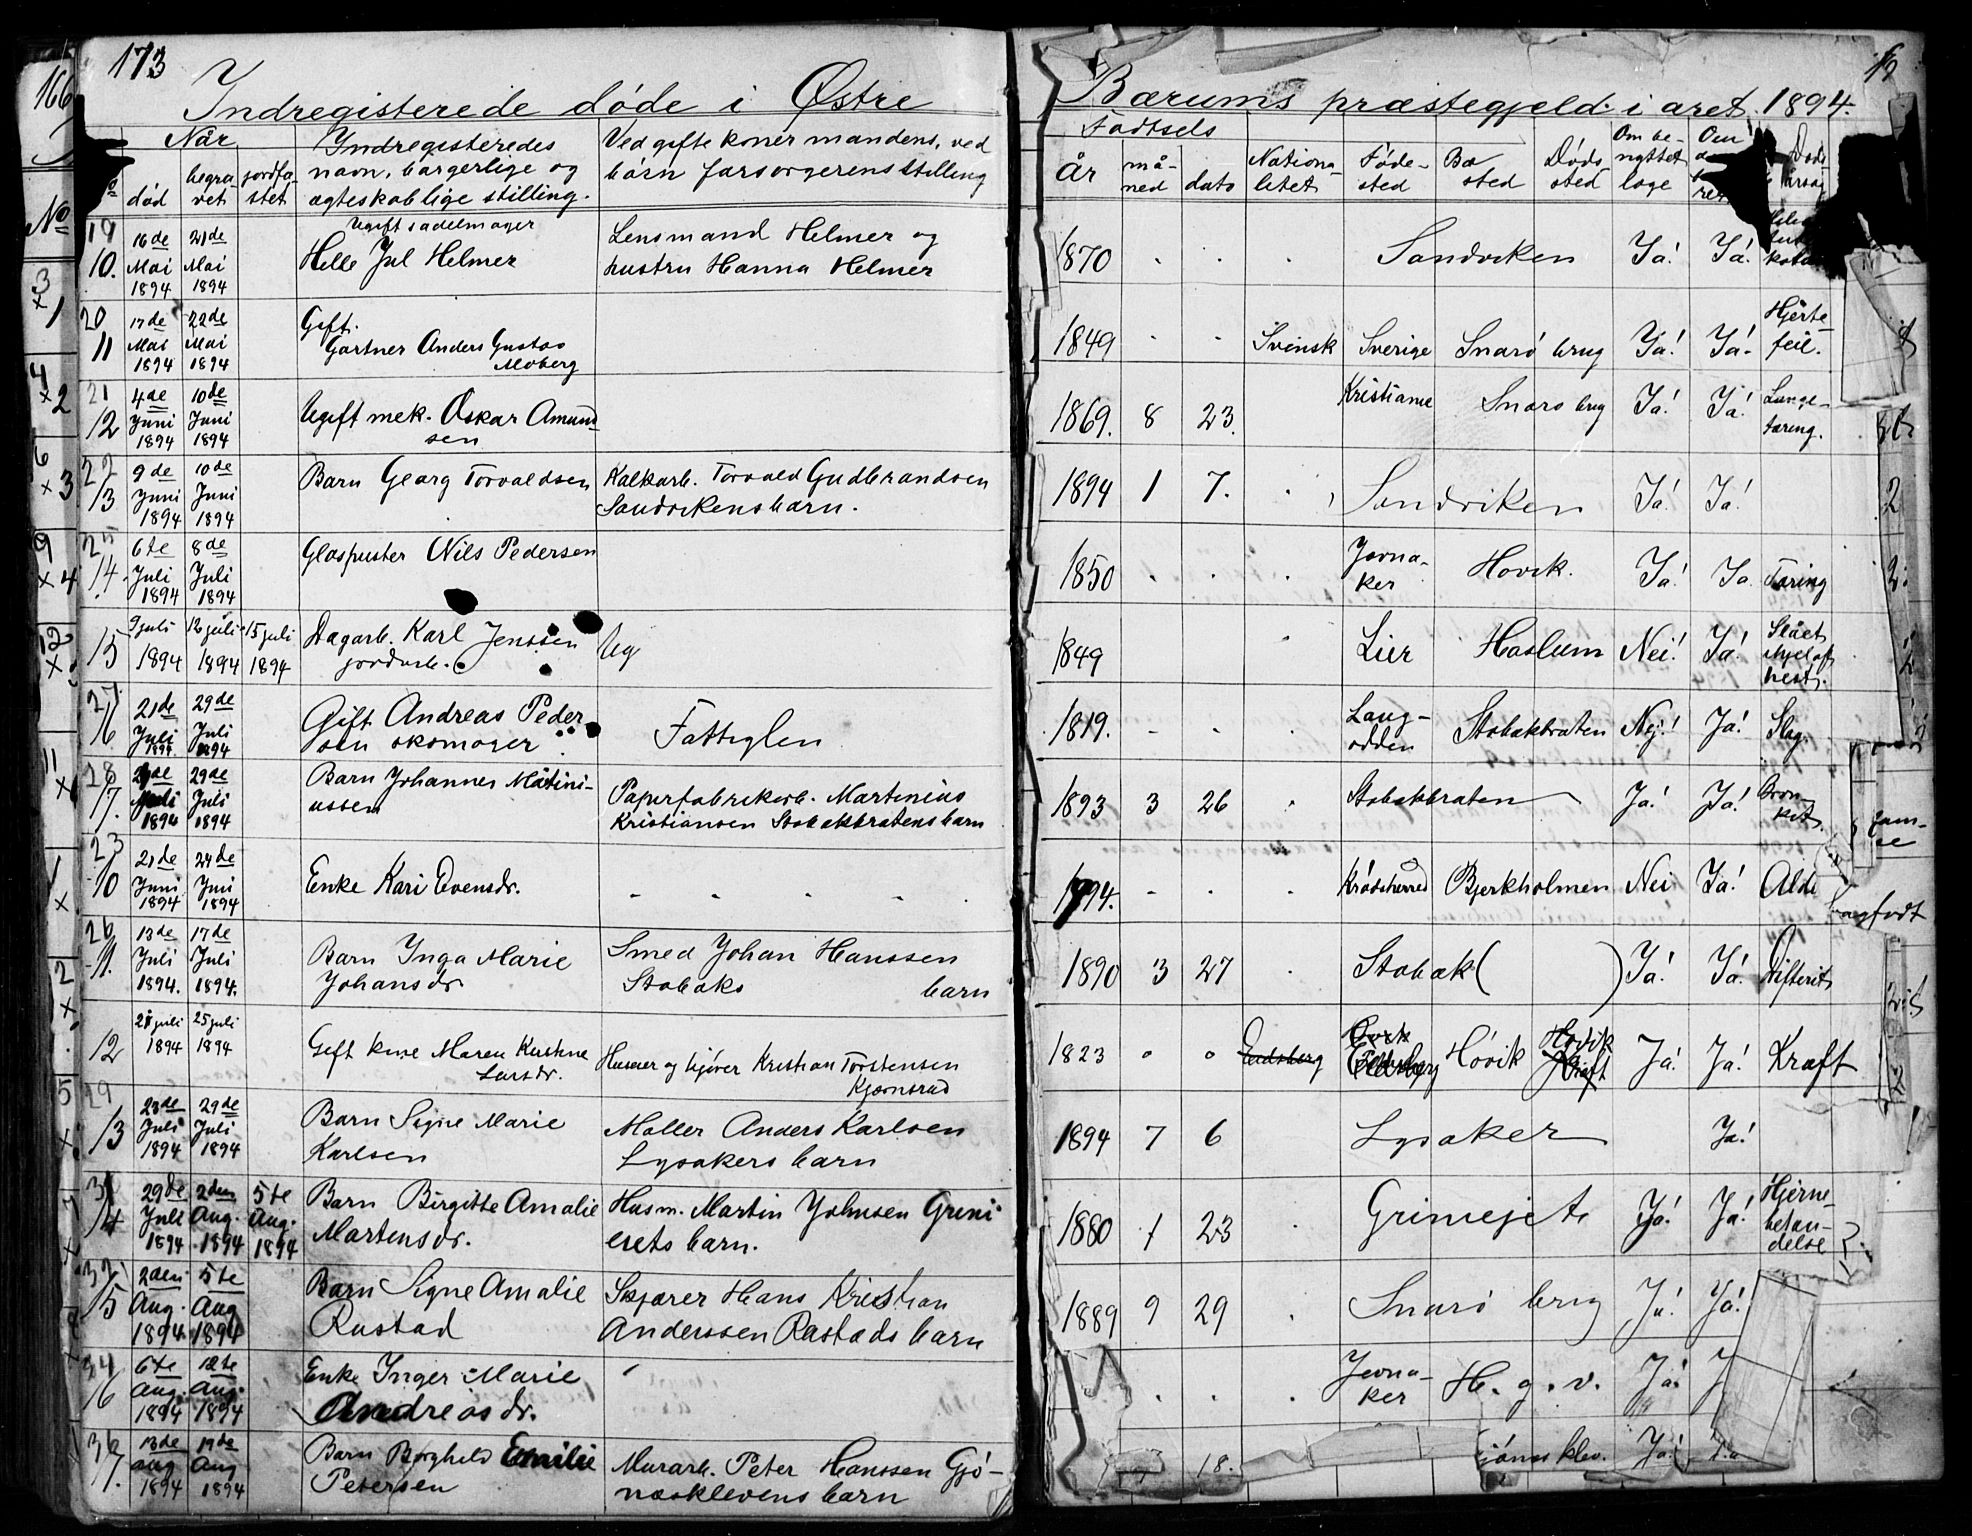 173
166
Indregisterede døde i Østre Bærums præstegjeld i aret 1894.
Når
død
begravet
jordfæstet
Indregisteredes
navn, borgerlige og
ægteskablige stilling.
Ved gifte koner mandens, ved
børn forsørgerens stilling
Fødtsels
År
måned
dato
Nationalitet
Fødested
Bosted
Dødssted
Om benyttet læge
19
10. 16de Mai 1894 21de Mai 1894
Ugift sadelmager
Helle Jul Helmer
Lensmand Helmer og
hustru Hanna Helmer
1870 Sandviken Ja! Ja!
20
11 17de Mai 1894 22de Mai 1894
Gift.
Gartner Anders Gustav
Moberg
1849 Svensk Sverige Snarø brug Ja! Ja. Hjerte-
feil.
21
12 4de Juni 1894 10de Juni 1894
Ugift mek. Oskar Amund-
sen
1869. 8 23. Kristiania Snarø brug Ja! Ja! Lunge-
tæring.
22
13 9de Juni 1894 10de Juni 1894
Barn Georg Torvaldsen
Kalkarb. Torvald Gudbrandsen
Sandvikens barn.
1894 1 7. Sandviken Ja! Ja!
25
14. 6te Juli 1894 8de Juli 1894
Glaspuster Nils Pedersen
1850 Jevna-
ker Høvik. Ja! Ja Tæring
15 9 juli 1894 12 juli 1894 15 juli 1894
Dagarb. Karl Jenssen
jordarb.
Ug
1849 Lier Haslum Nei! Ja! Slået
ihjel af
hest.
27
16 21de Juli 1894 29de Juli 1894
Gift Andreas Peder
sen skomager
Fattiglem
1819. Lang-
odden Stabækbraten Nej! Ja! Slag
28
17. Juli 1894 29de Juli 1894
Barn Johannes Martini-
ussen
Papirfabrikarb. Martinius
Kristiansen Stabækbratens barn
1893 3 26 Stabækbraten Ja! Ja! Bron-
kit.
23
10 21de Juni 1894 24de Juni 1894
Enke Kari Evensdr.
1794. Krødsherred Bjerkholmen Nei Ja! Alde
26
11. 13de Juli 1894. 17de Juli 1894.
Barn Inga Marie
Johansdr
Smed Johan Hanssen
Stabæks barn
1890 3 27 Stabæk ( ) Ja! Ja! Difterit
12 21 juli 1894 25 juli 1894
Gift kone Maren Kristine
Larsdr.
Husmer og kjører Kristian Torstensen
Kjørnsrud
1823 Eidsberg Høvik Høvik Ja! Ja! Kræft
29
13 23de Juli 1894 29de Juli 1894
Barn Signe Marie
Karlsen
Møller Anders Karlsen
Lysakers barn
1894 7 6 Lysaker Ja!
31
14 29de Juli 1894 2den Aug. 1894 5te Aug. 1894
Barn Birgitte Amalie
Martensdr.
Husm. Martin Johnsen Grini
eiets barn.
1880 1 23 Griniejet Ja! Ja! Hjerne
betæn-
delse
32
15 2den Aug. 1894 5te Aug 1894
Barn Signe Amalie
Rustad
Skjærer Hans Kristian
Anderssen Rastads barn
1889 9 29 Snarø brug Ja! Ja!
34
16 6te Aug. 1894 12te Aug. 1894
Enke Inger Marie
Andreasdr.
Jevna-
ker H. g. v. Ja! J
36
17. 13de aug 1894 19de Aug 1894
Barn Borghild Emilie
Petersen
Murarb. Peter Hanssen Gjø-
næsklevens barn
18. jønæsklev. Ja! Ja